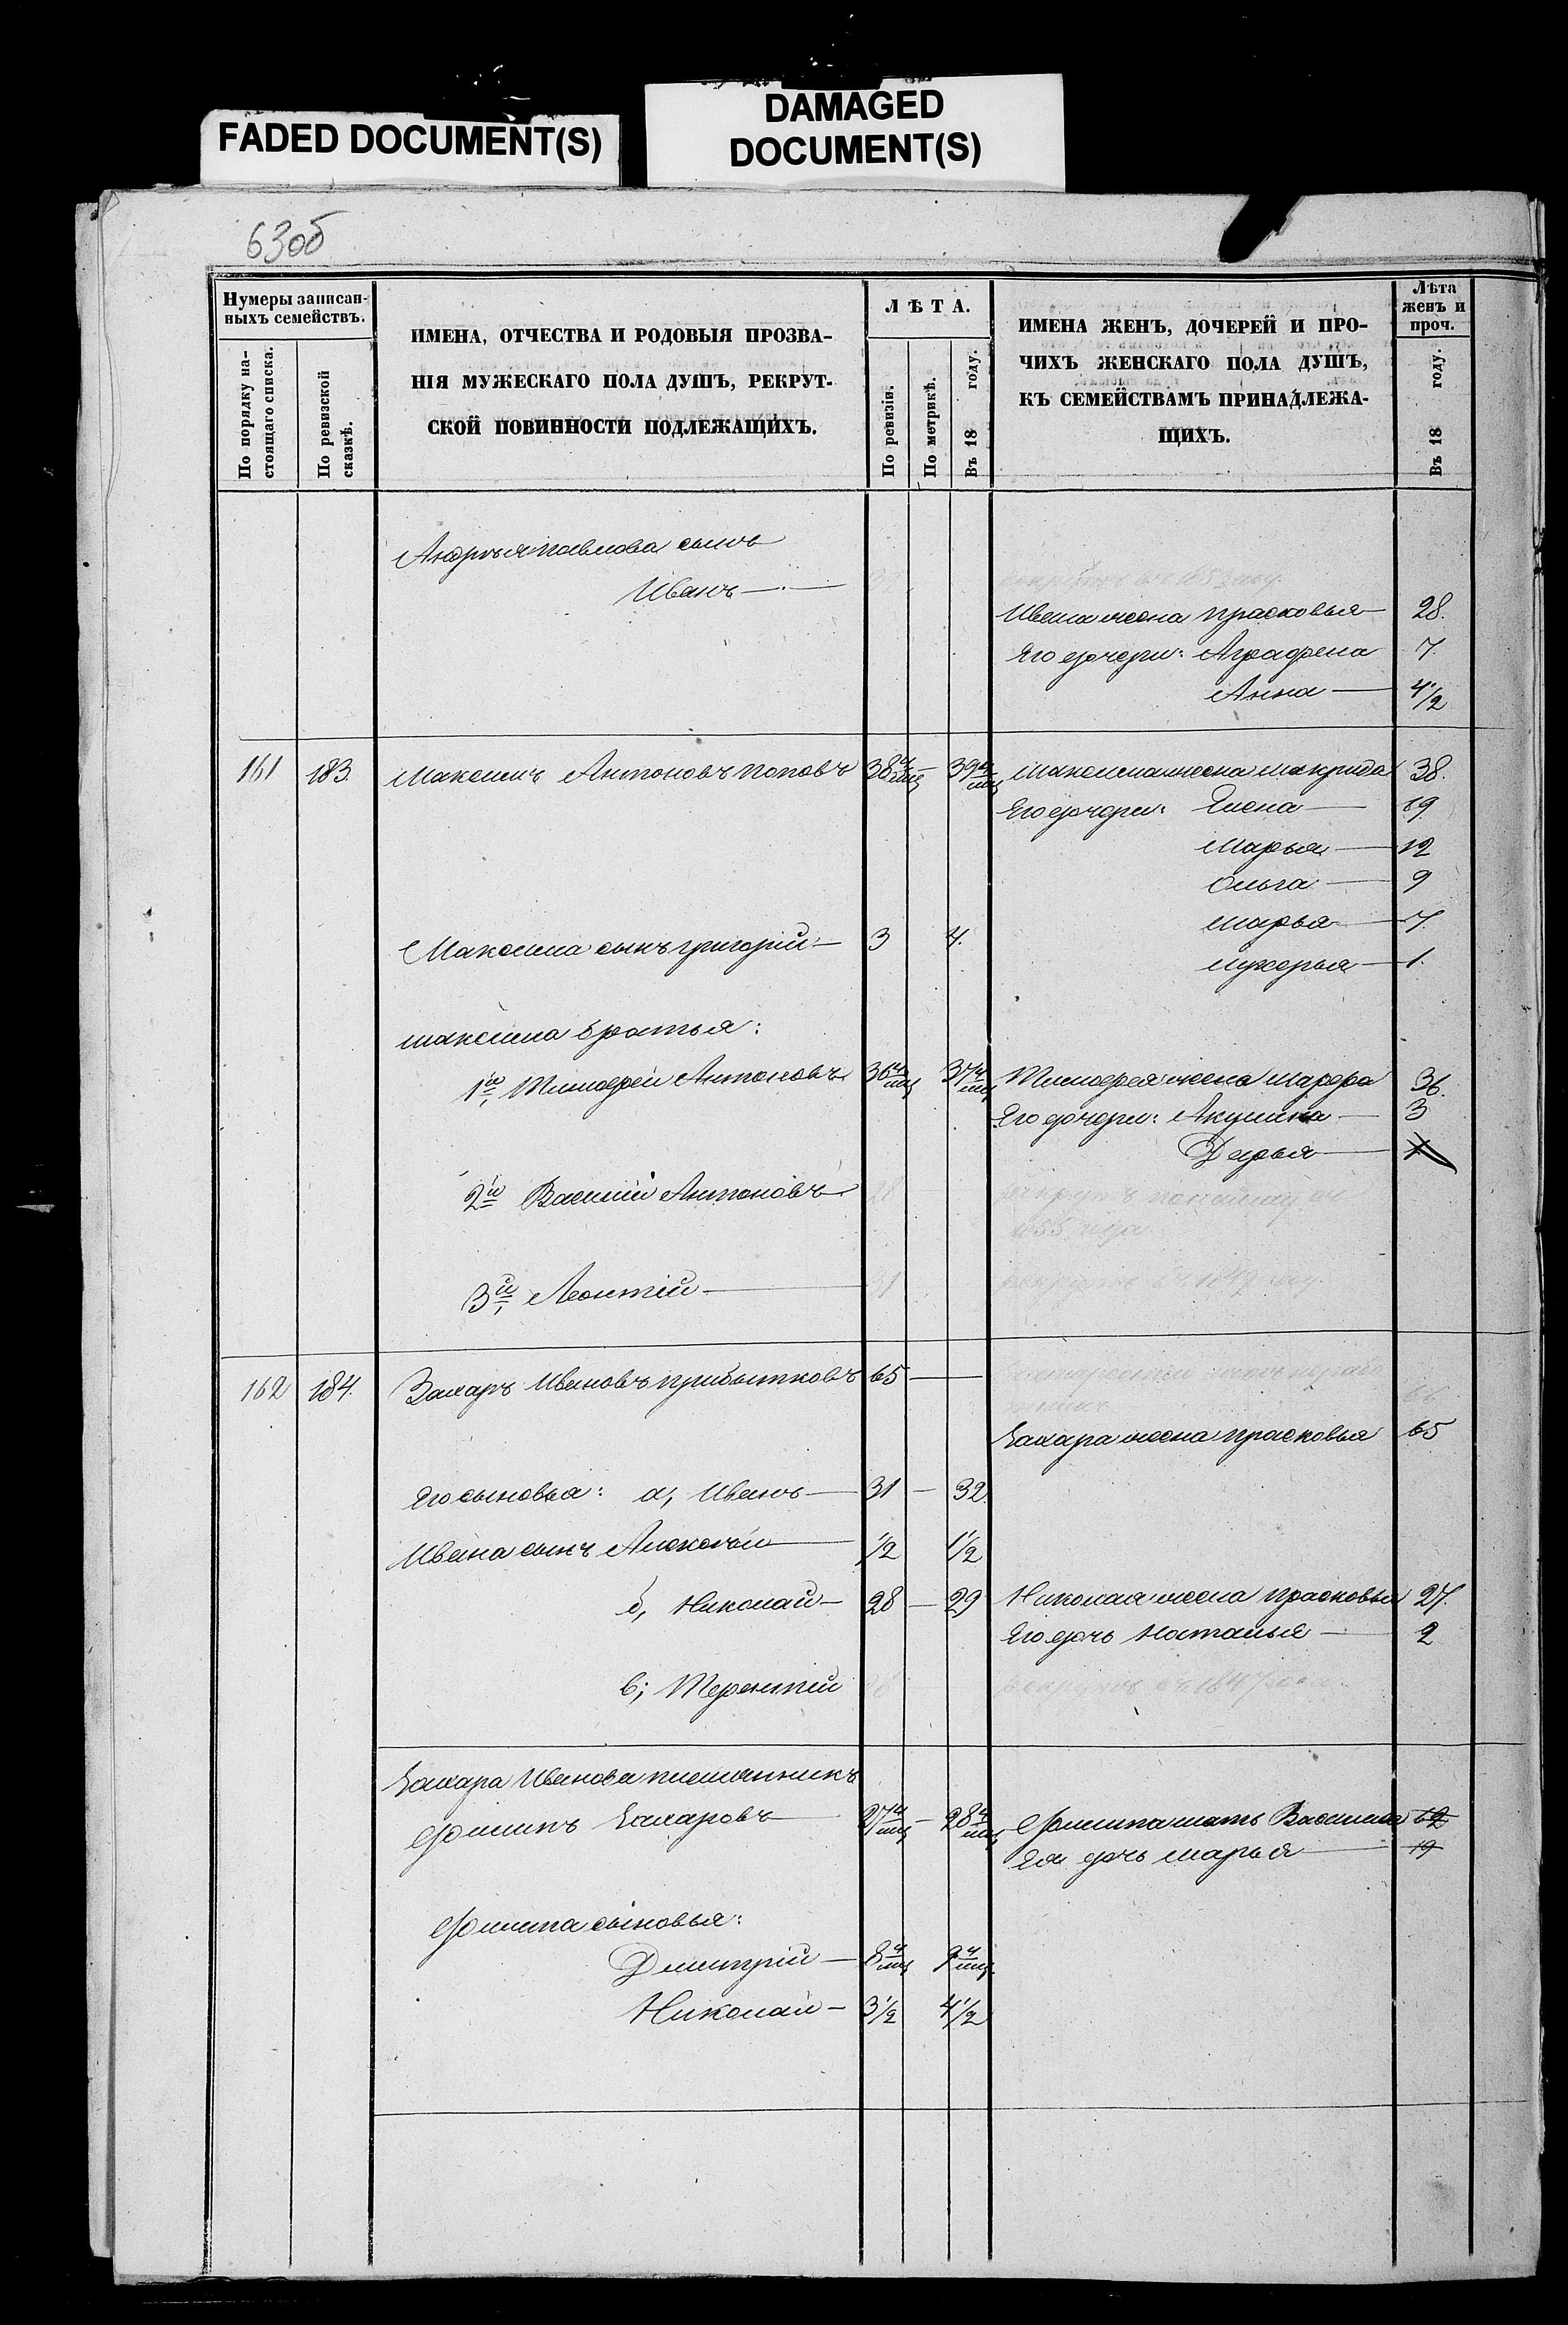 FADED DOCUMENT(S)
DAMAGED
DOCUMENT(S)
63об
Нумеры записан-
ныхъ семействъ.
По порядку на-
стоящаго списка.
По ревизской
сказкѣ.
ИМЕНА, ОТЧЕСТВА И РОДОВЫЯ ПРОЗВА-
НІЯ МУЖЕСКАГО ПОЛА ДУШЪ, РЕКРУТ-
СКОЙ ПОВИННОСТИ ПОДЛЕЖАЩИХЪ.
ЛѢТА.
По ревизіи.
По метрикѣ.
Въ 18 году.
ИМЕНА ЖЕНЪ, ДОЧЕРЕЙ И ПРО-
ЧИХЪ ЖЕНСКАГО ПОЛА ДУШЪ,
КЪ СЕМЕЙСТВАМЪ ПРИНАДЛЕЖА-
ЩИХЪ.
Лѣта
женъ и
проч.
Въ 18 году.
Андрея Павлова сынъ
Иванъ —
Ивана жена Прасковья 28.
Его дочери: Аграфена 7.
Анна — 4 1/2
161 183. Максимъ Антоновъ Поповъ 38 — 39 Максима жена Макрида 38.
Его дочери: Елена — 19
Марья — 12
Ольга — 9
Максима сынъ Григорій — 3 4. Марья — 7.
Лукерья — 1.
Максима братья:
1й, Тимофей Антоновъ 36 37 Тимофея жена Марфа 36.
Его дочери: Акулина — 3
Дарья — 1
2й Василій Антоновъ 28 рекрутъ
1855 года
3й, Леонтій —
162 184. Захаръ Ивановъ Прибытковъ 65 —
66
Захара жена Прасковья 65
Его сыновья: а, Иванъ — 31 — 32.
Ивана сынъ Алексѣй — 1/2 1 1/2
б, Николай — 28 — 29 Николая жена Прасковья 27.
Его дочь Наталья — 2
в; Терентій рекрутъ съ 1847 года
Захара Иванова племянникъ
Филипъ Захаровъ 27 — 28 Филипа мать Василиса 62
Ея дочь Марья — 19
Филипа сыновья:
Дмитрій — 8 9
Николай — 3 1/2 4 1/2